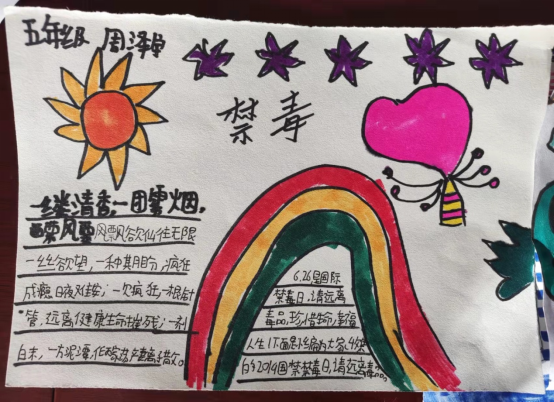 五年级 周泽
禁毒
一缕清香,一团雪烟,
飘飘欲仙往无限
一丝欲望,一种期盼,疯狂
成瘾日夜难 一次疯狂,一根针
管,远离健康生命摧残;一剂
白末,一方泥潭,
6.26是国际
禁毒日,请远离
毒品,珍惜生命,幸福
人生!下面是小编为大家
2019国禁禁毒日,请远离毒品。